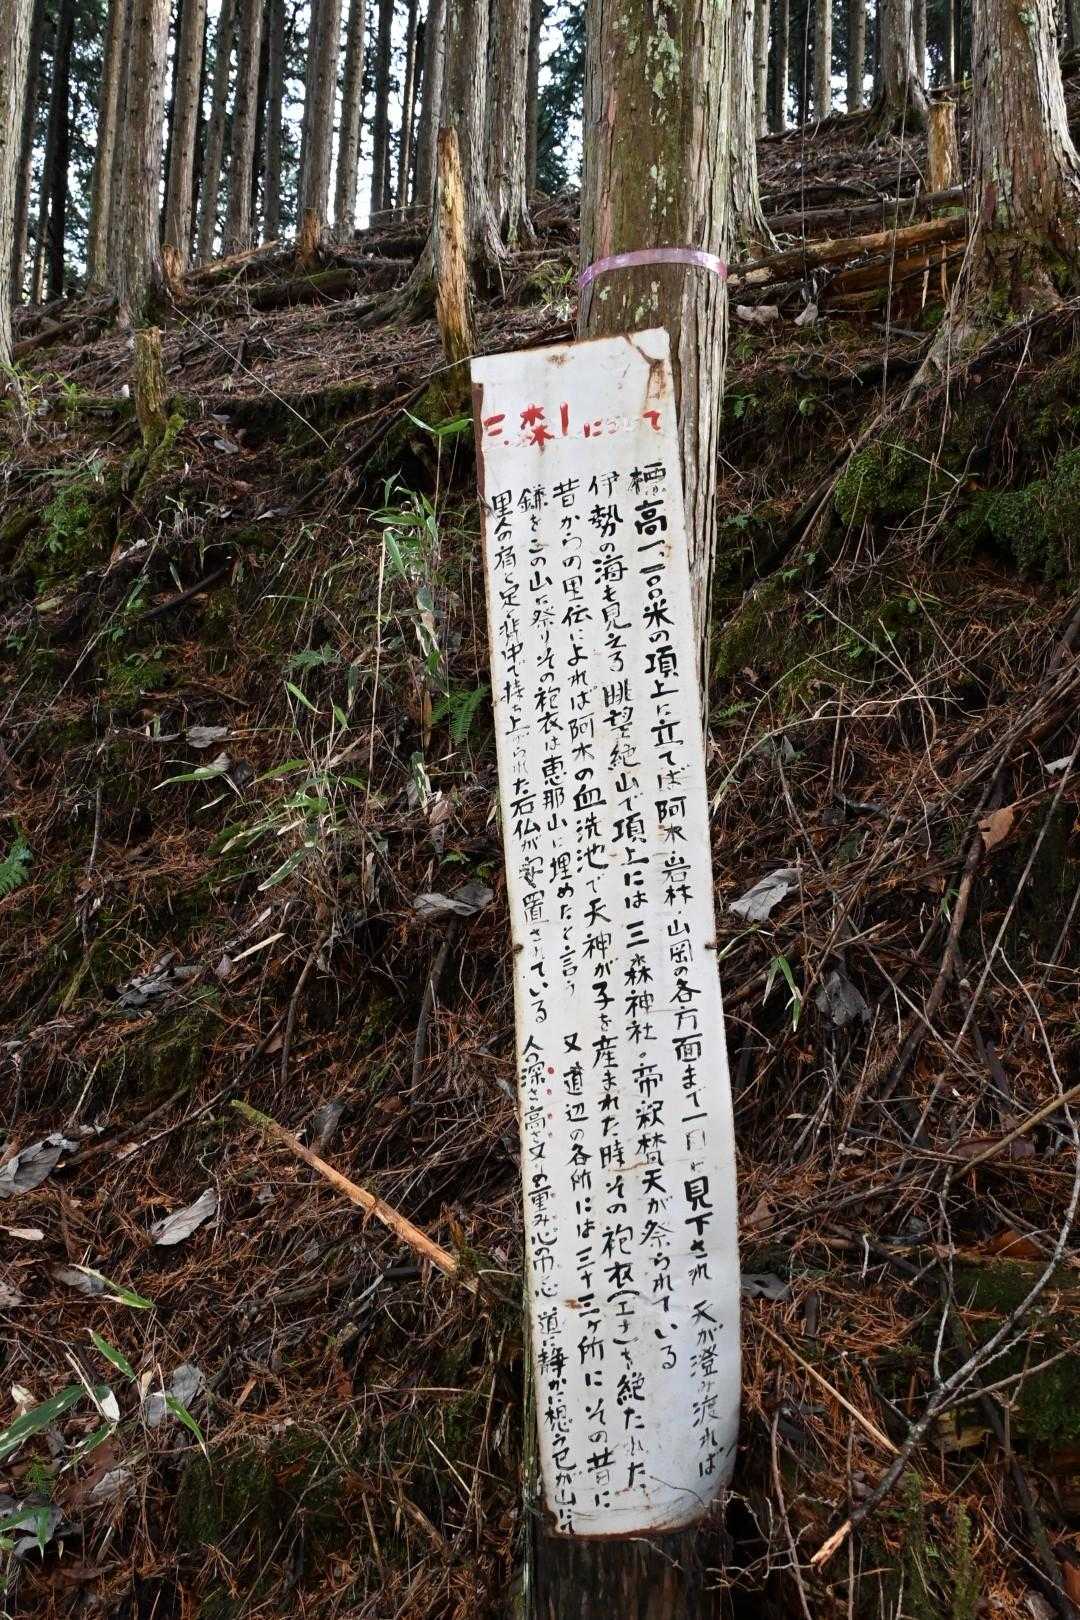 三森山について
標高一一〇〇米の項上に立てば阿木・岩村・山岡の各方面まで一目に見下され 天が澄み渡れば
伊勢の海も見える 眺望絶山で項上には三森神社・帝釈梵天が祭られている
昔からの里伝によれば阿木の血洗池で天神が子を産まれた時その袍衣(エナ)を絶たれた
鎌をこの山に祭りその袍衣は恵那山に埋めたと言う 又道辺の各所には三十三ヶ所にその昔に
里人の肩と足と背中で持ち上げられた石仏が安置されている 人の深さ高さ又の重み心の 道に静かに想う